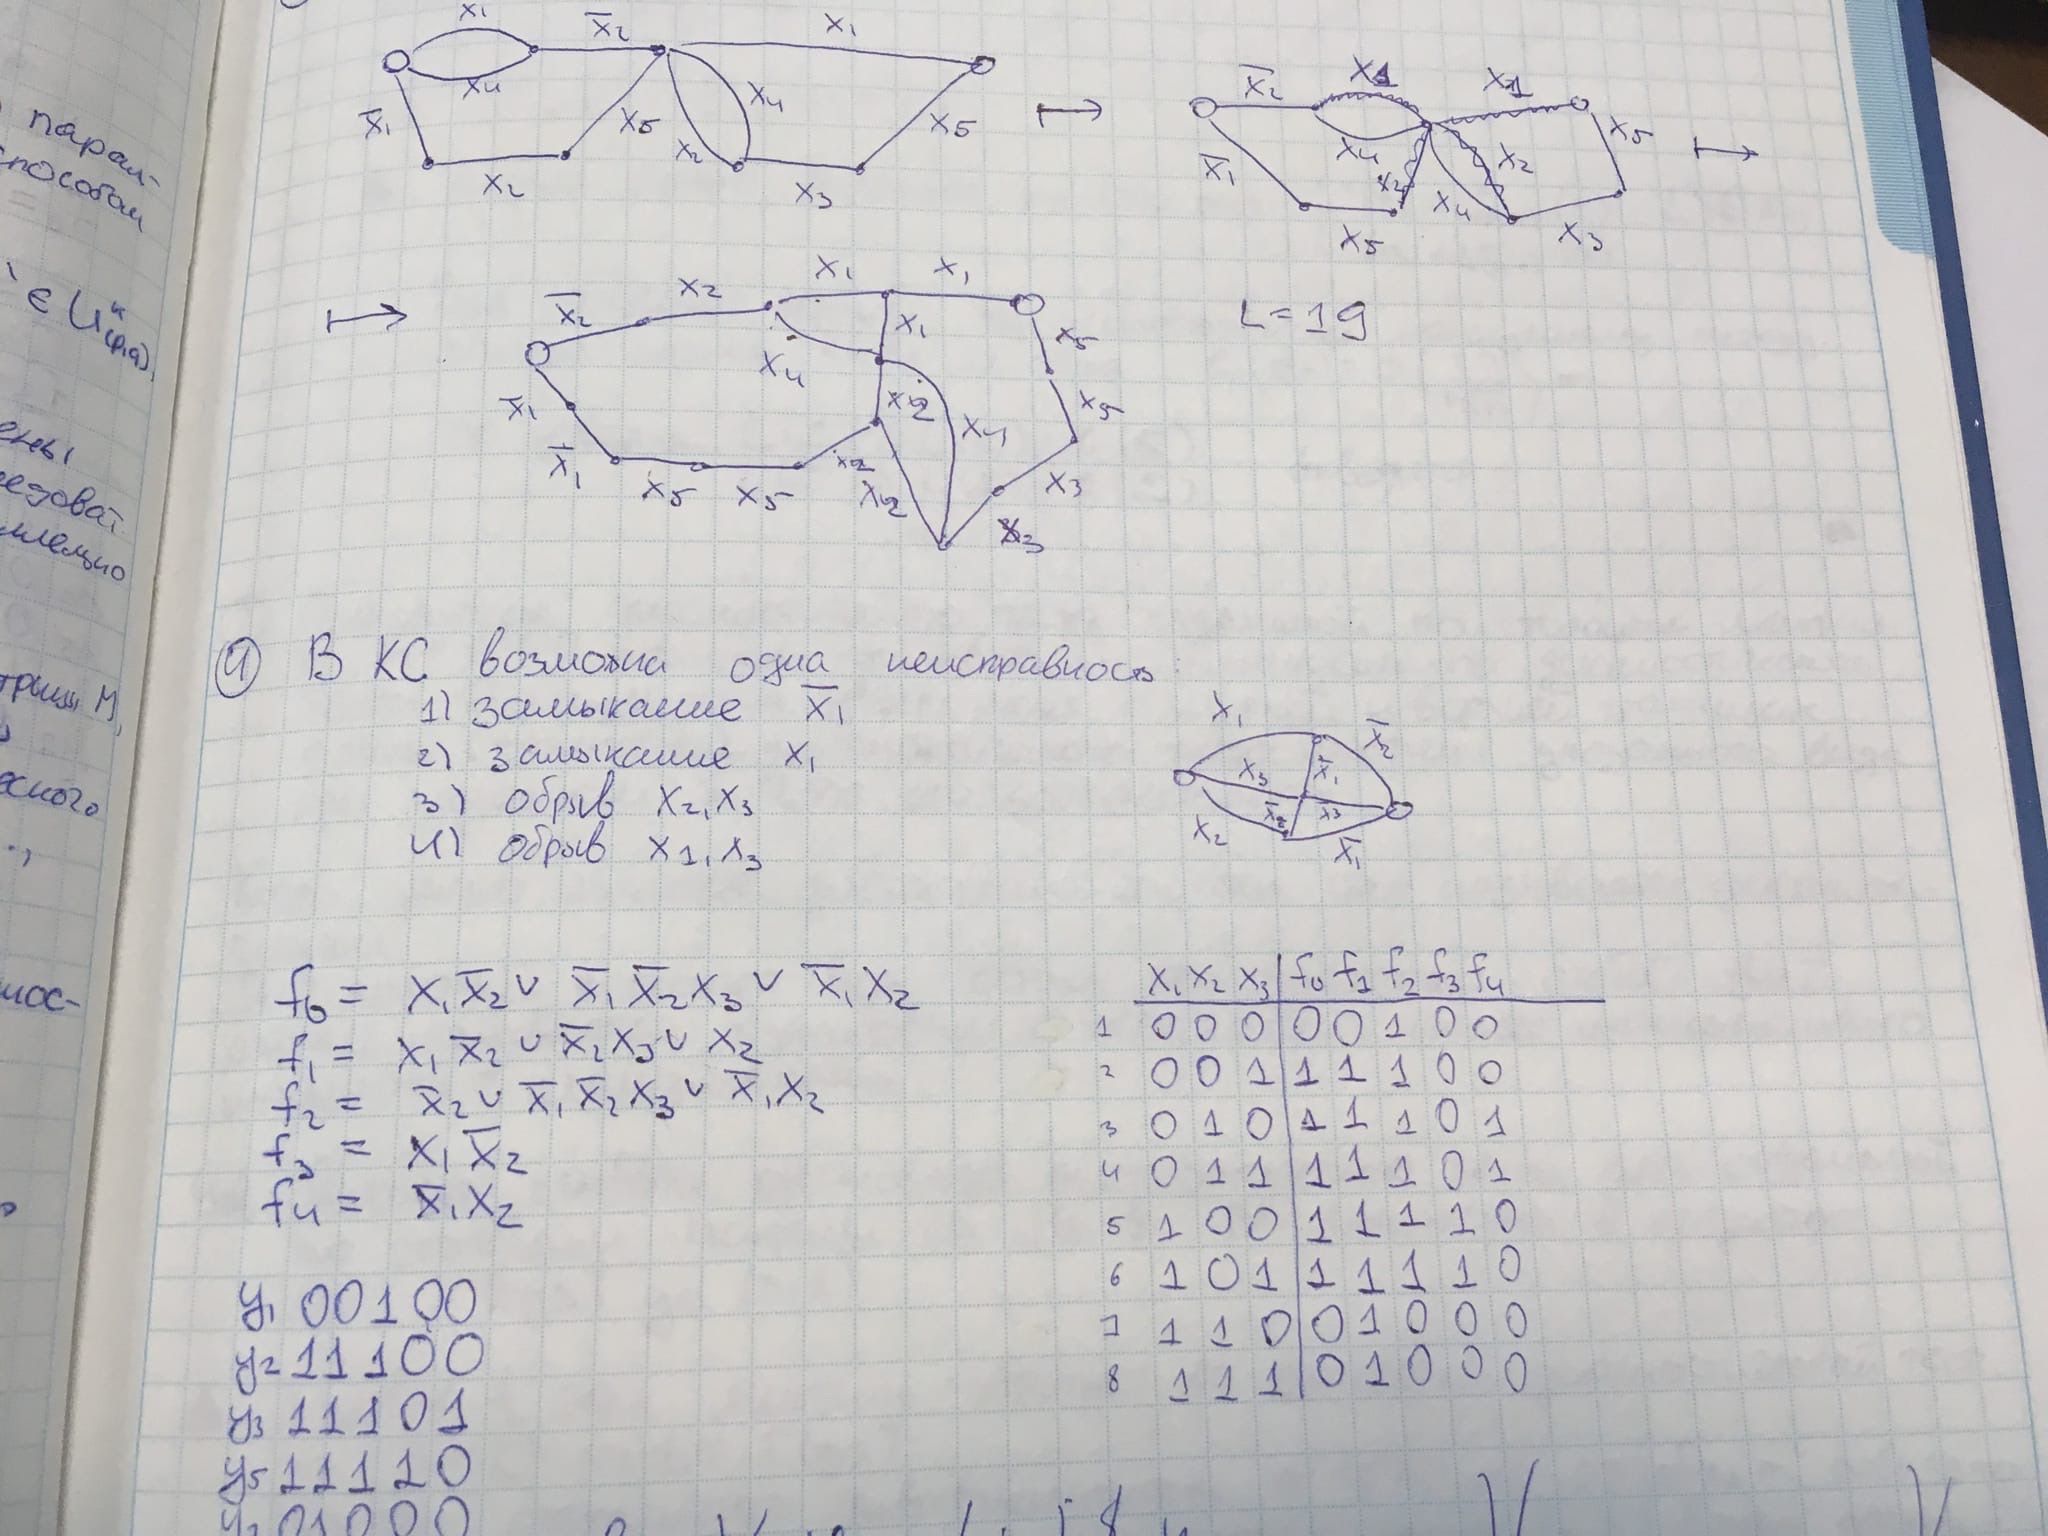 x₁ x̅₂ x₁
x₄ x₄
x̅₁ x₅ x₂ x₅
x₂ x₃
x̅₂ x₁ x₁
x₄ x₂ x₅
x̅₁ x₂ x₄
x₅ x₃
парал-
способом
x̅₂ x₂ x₁ x₁
x₄ x₁ x₅
x̅₁ x₂ x₄ x₅
x̅₁ x₅ x₅ x₂ x₂ x₃
x₃
L = 19
④ В КС возможна одна неисправность:
1) замыкание x̅₁
2) замыкание x₁
3) обрыв x₂, x₃
4) обрыв x₁, x₃
x₁ x̅₂
x₃ x̅₁
x₂ x̅₂ x₃
x̅₁
f₀ = x₁x̅₂ ∨ x̅₁x̅₂x₃ ∨ x̅₁x₂
f₁ = x₁x̅₂ ∨ x̅₂x₃ ∨ x₂
f₂ = x̅₂ ∨ x̅₁x̅₂x₃ ∨ x̅₁x₂
f₃ = x₁x̅₂
f₄ = x̅₁x₂
x₁ x₂ x₃ | f₀ f₁ f₂ f₃ f₄
1 0 0 0 | 0 0 1 0 0
2 0 0 1 | 1 1 1 0 0
3 0 1 0 | 1 1 1 0 1
4 0 1 1 | 1 1 1 0 1
5 1 0 0 | 1 1 1 1 0
6 1 0 1 | 1 1 1 1 0
7 1 1 0 | 0 1 0 0 0
8 1 1 1 | 0 1 0 0 0
y₁ 00100
y₂ 11100
y₃ 11101
y₅ 11110
y₇ 01000